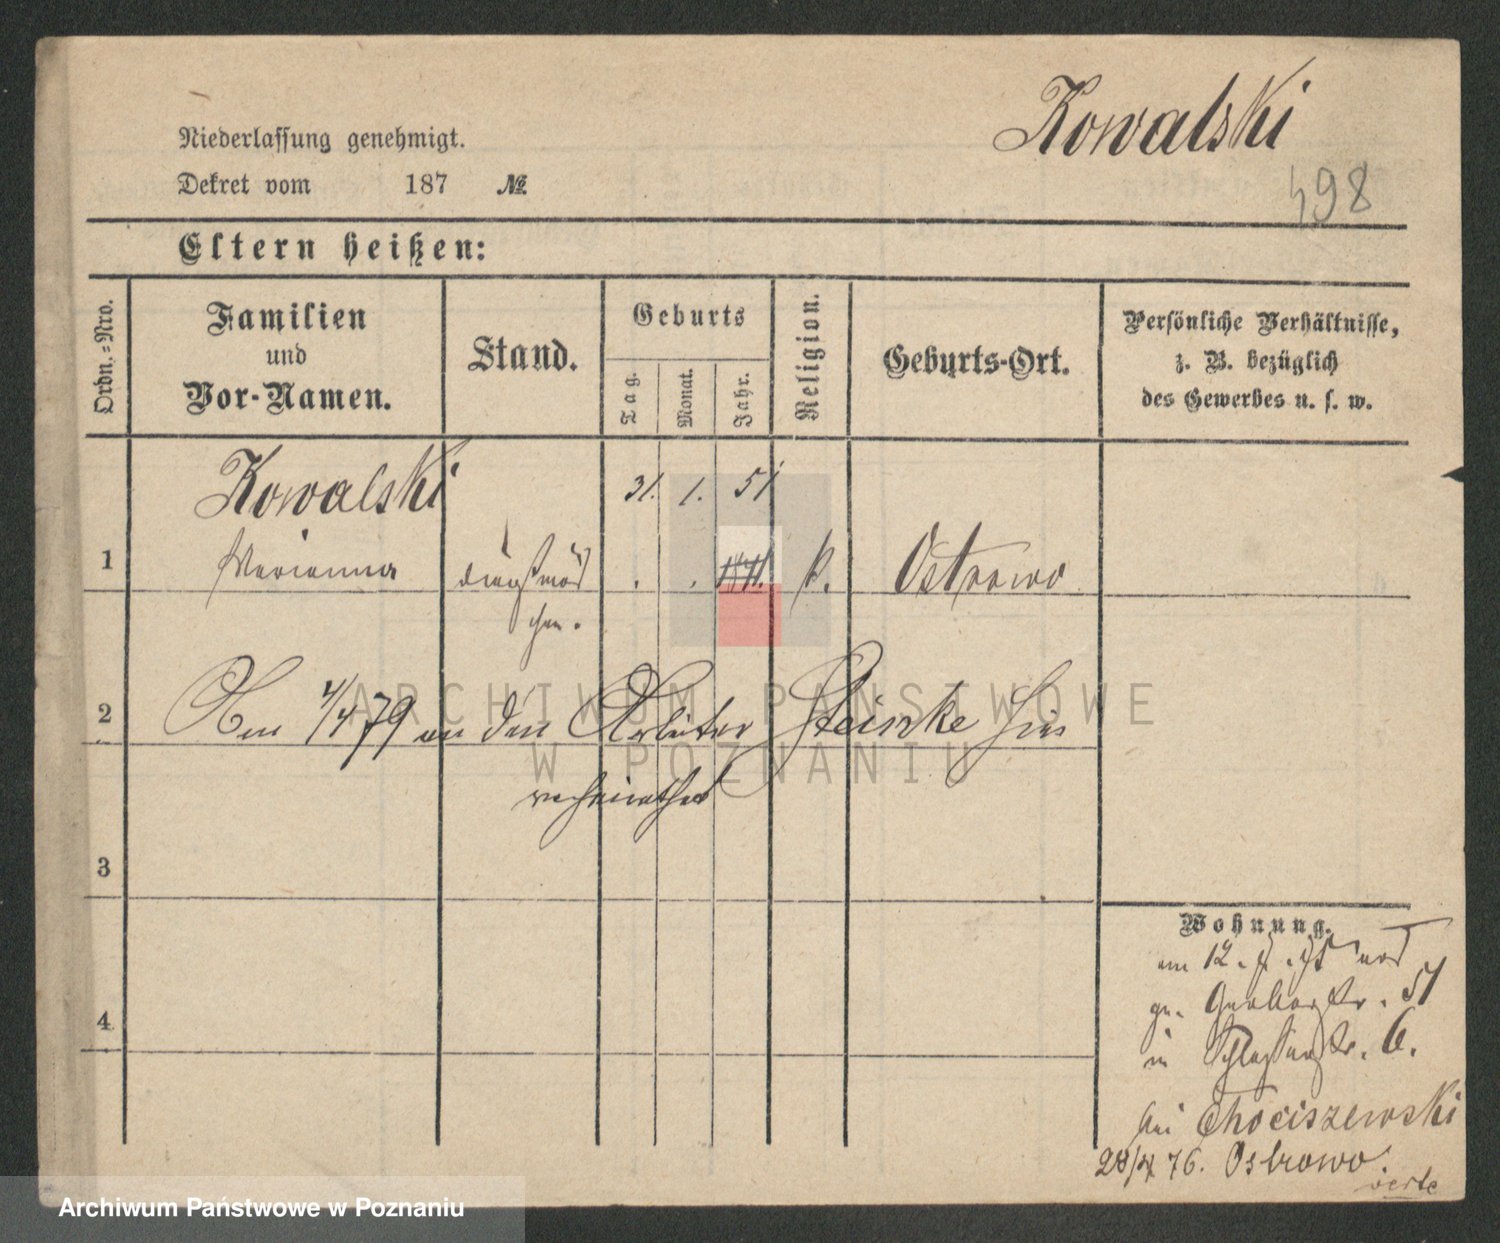 Kowalski
498
Niederlassung genehmigt.
Dekret vom 187 №
Eltern heißen:
Ordn.-Nro.
Familien
und
Vor-Namen.
Stand.
Geburts
Tag.
Monat.
Jahr.
Religion.
Geburts-Ort.
Persönliche Verhältnisse,
z. B. bezüglich
des Gewerbes u. s. w.
Kowalski 31. 1. 51
1 Marianna Dienstmäd k. Ostrowo
chen.
2 Am 4/4 79 an den Arbeiter Steinke hier
verheirathet
3
4
Wohnung.
am 12. 75
gr. Gerberstr. 51
in Schlosserstr. 6.
bei Chociszewski
76. Ostrowo.
verte
ARCHIWUM PAŃSTWOWE
W POZNANIU
Archiwum Państwowe w Poznaniu